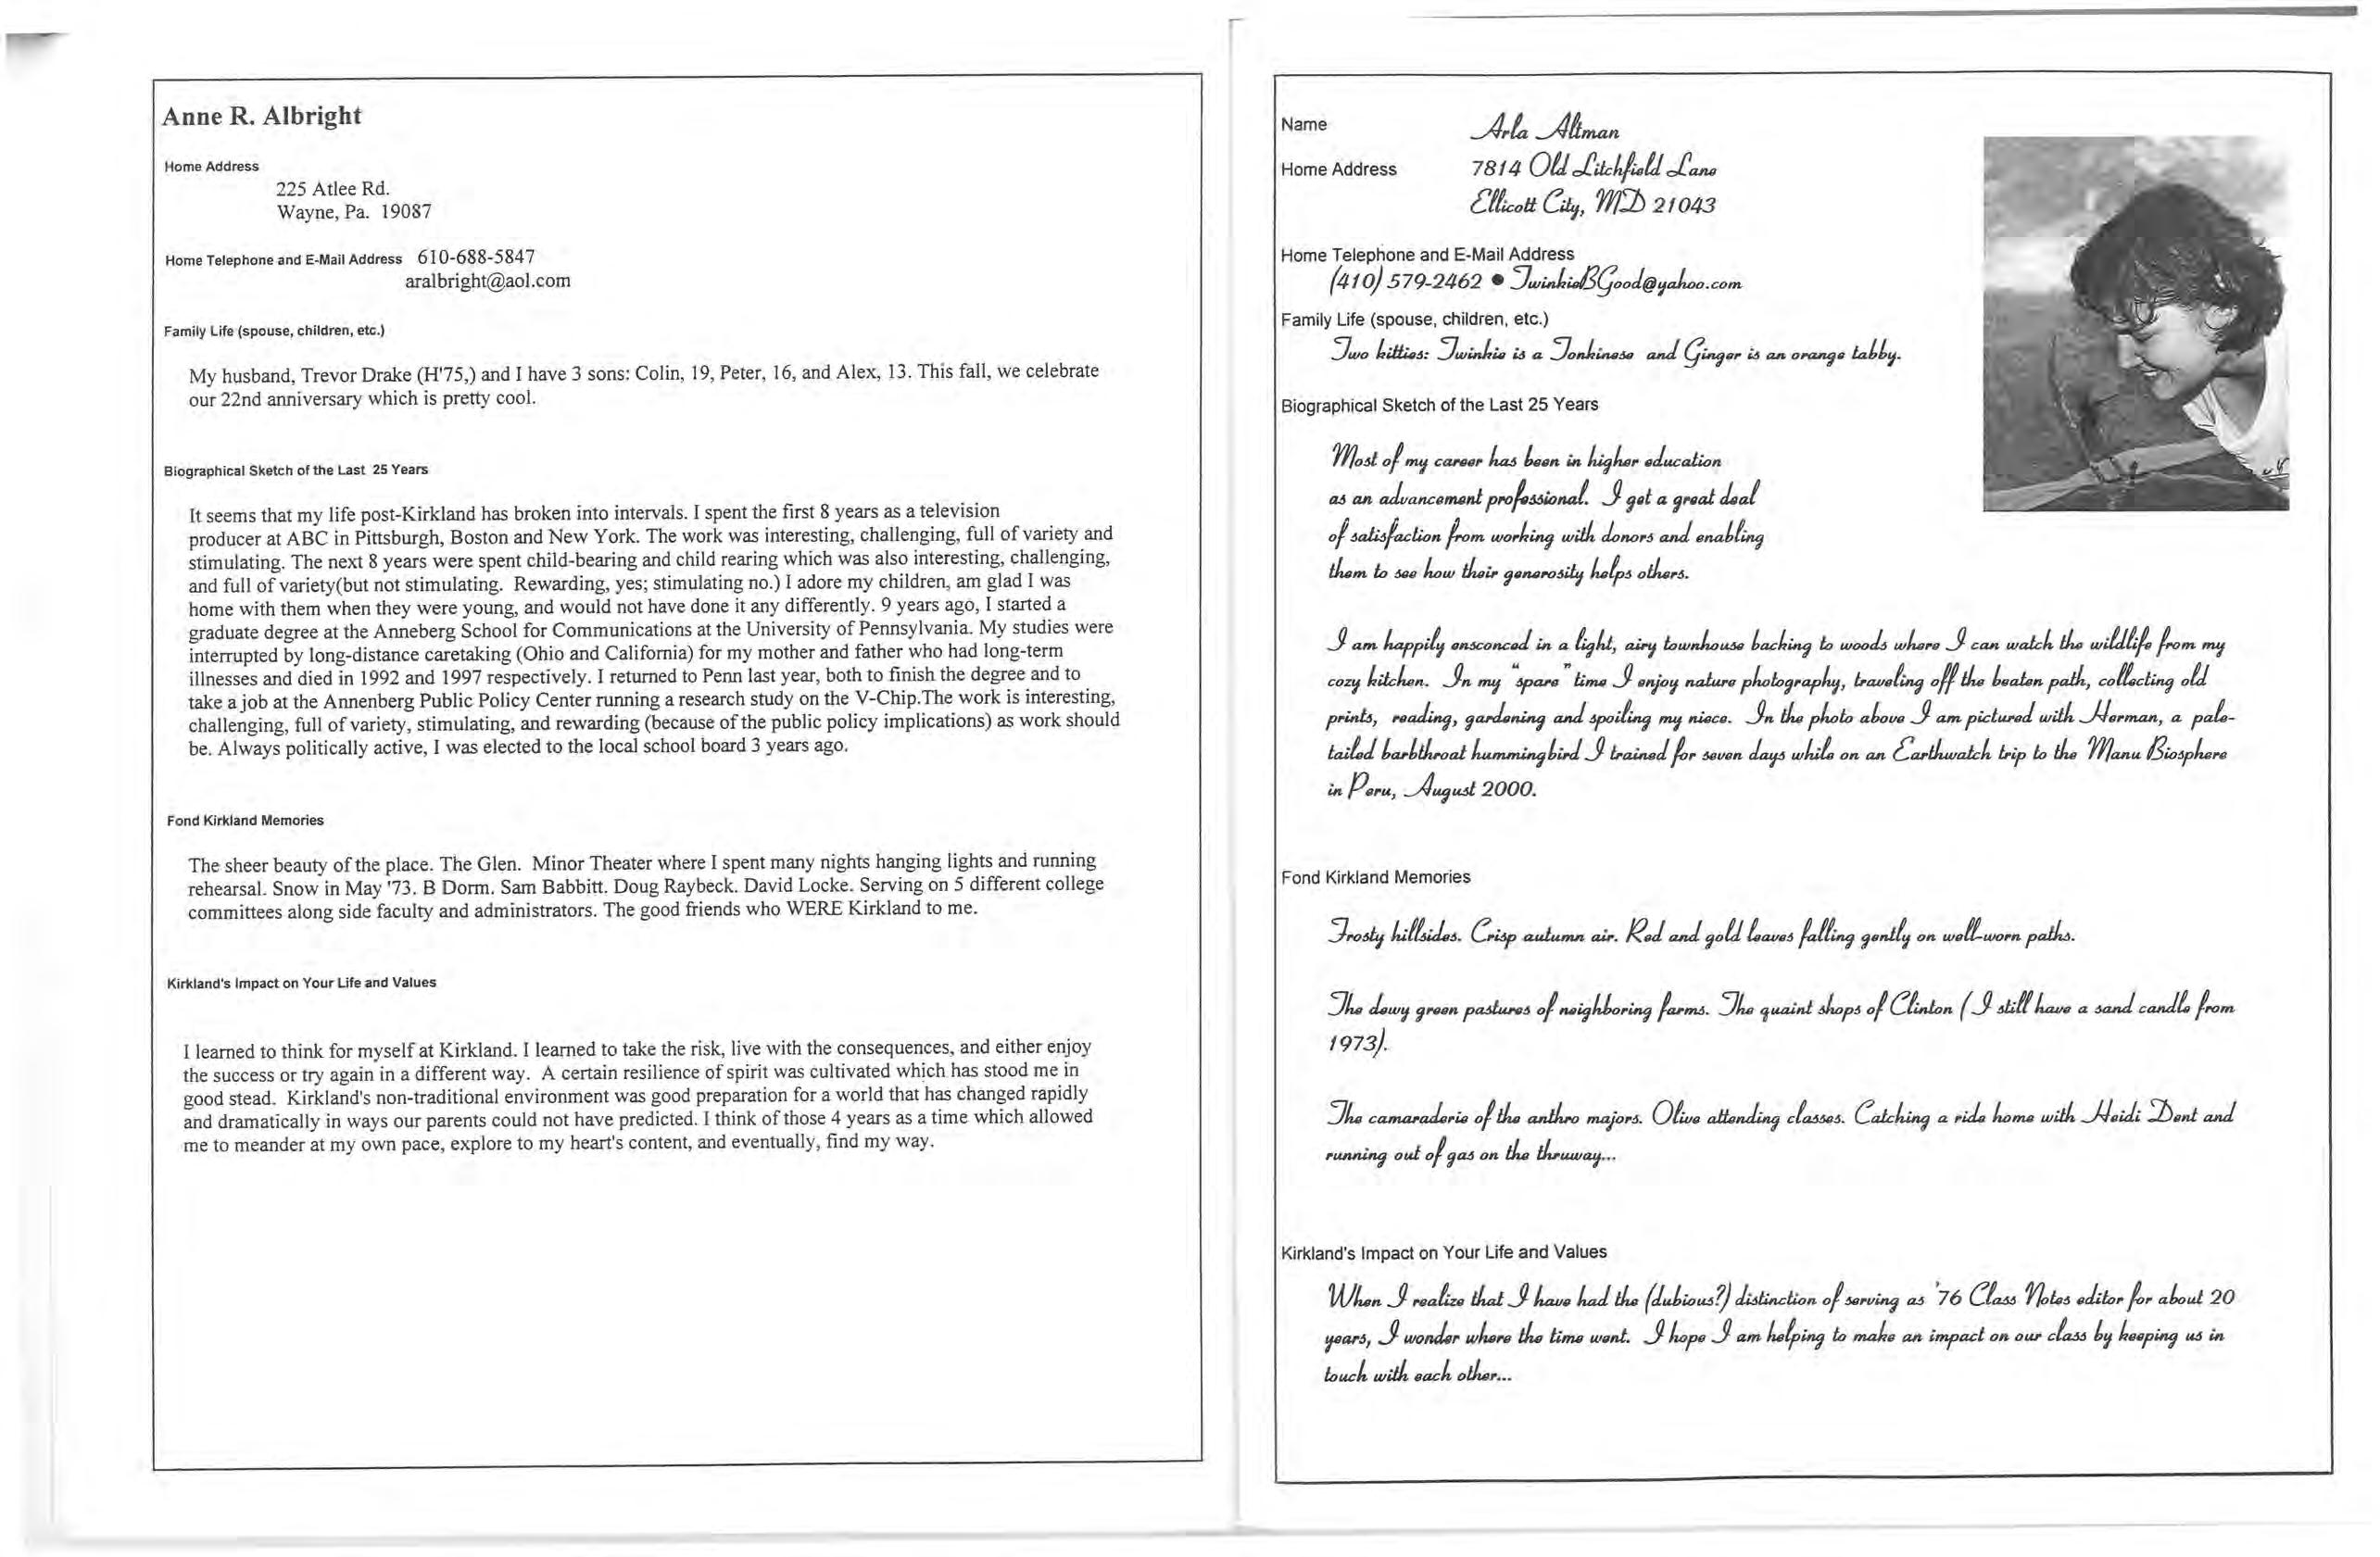 Anne R. Albright
Home Address
225 Atlee Rd.
Wayne, Pa. 19087
Home Telephone and E-Mail Address 610-688-5847
aralbright@aol.com
Family Life (spouse, children, etc.)
My husband, Trevor Drake (H'75,) and I have 3 sons: Colin, 19, Peter, 16, and Alex, 13. This fall, we celebrate
our 22nd anniversary which is pretty cool.
Biographical Sketch of the Last 25 Years
It seems that my life post-Kirkland has broken into intervals. I spent the first 8 years as a television
producer at ABC in Pittsburgh, Boston and New York. The work was interesting, challenging, full of variety and
stimulating. The next 8 years were spent child-bearing and child rearing which was also interesting, challenging,
and full of variety(but not stimulating. Rewarding, yes; stimulating no.) I adore my children, am glad I was
home with them when they were young, and would not have done it any differently. 9 years ago, I started a
graduate degree at the Anneberg School for Communications at the University of Pennsylvania. My studies were
interrupted by long-distance caretaking (Ohio and California) for my mother and father who had long-term
illnesses and died in 1992 and 1997 respectively. I returned to Penn last year, both to finish the degree and to
take a job at the Annenberg Public Policy Center running a research study on the V-Chip.The work is interesting,
challenging, full of variety, stimulating, and rewarding (because of the public policy implications) as work should
be. Always politically active, I was elected to the local school board 3 years ago.
Fond Kirkland Memories
The sheer beauty of the place. The Glen. Minor Theater where I spent many nights hanging lights and running
rehearsal. Snow in May '73. B Dorm. Sam Babbitt. Doug Raybeck. David Locke. Serving on 5 different college
committees along side faculty and administrators. The good friends who WERE Kirkland to me.
Kirkland's Impact on Your Life and Values
I learned to think for myself at Kirkland. I learned to take the risk, live with the consequences, and either enjoy
the success or try again in a different way. A certain resilience of spirit was cultivated which has stood me in
good stead. Kirkland's non-traditional environment was good preparation for a world that has changed rapidly
and dramatically in ways our parents could not have predicted. I think of those 4 years as a time which allowed
me to meander at my own pace, explore to my heart's content, and eventually, find my way.
Name Arla Altman
Home Address 7814 Old Litchfield Lane
Ellicott City, MD 21043
Home Telephone and E-Mail Address
(410) 579-2462 • TwinkieBGood@yahoo.com
Family Life (spouse, children, etc.)
Two kitties: Twinkie is a Tonkinese and Ginger is an orange tabby.
Biographical Sketch of the Last 25 Years
Most of my career has been in higher education
as an advancement professional. I get a great deal
of satisfaction from working with donors and enabling
them to see how their generosity helps others.
I am happily ensconced in a light, airy townhouse backing to woods where I can watch the wildlife from my
cozy kitchen. In my "spare" time I enjoy nature photography, traveling off the beaten path, collecting old
prints, reading, gardening and spoiling my niece. In the photo above I am pictured with Herman, a pale-
tailed barbthroat hummingbird I trained for seven days while on an Earthwatch trip to the Manu Biosphere
in Peru, August 2000.
Fond Kirkland Memories
Frosty hillsides. Crisp autumn air. Red and gold leaves falling gently on well-worn paths.
The dewy green pastures of neighboring farms. The quaint shops of Clinton (I still have a sand candle from
1973).
The camaraderie of the anthro majors. Olive attending classes. Catching a ride home with Heidi Dent and
running out of gas on the thruway...
Kirkland's Impact on Your Life and Values
When I realize that I have had the (dubious?) distinction of serving as '76 Class Notes editor for about 20
years, I wonder where the time went. I hope I am helping to make an impact on our class by keeping us in
touch with each other...